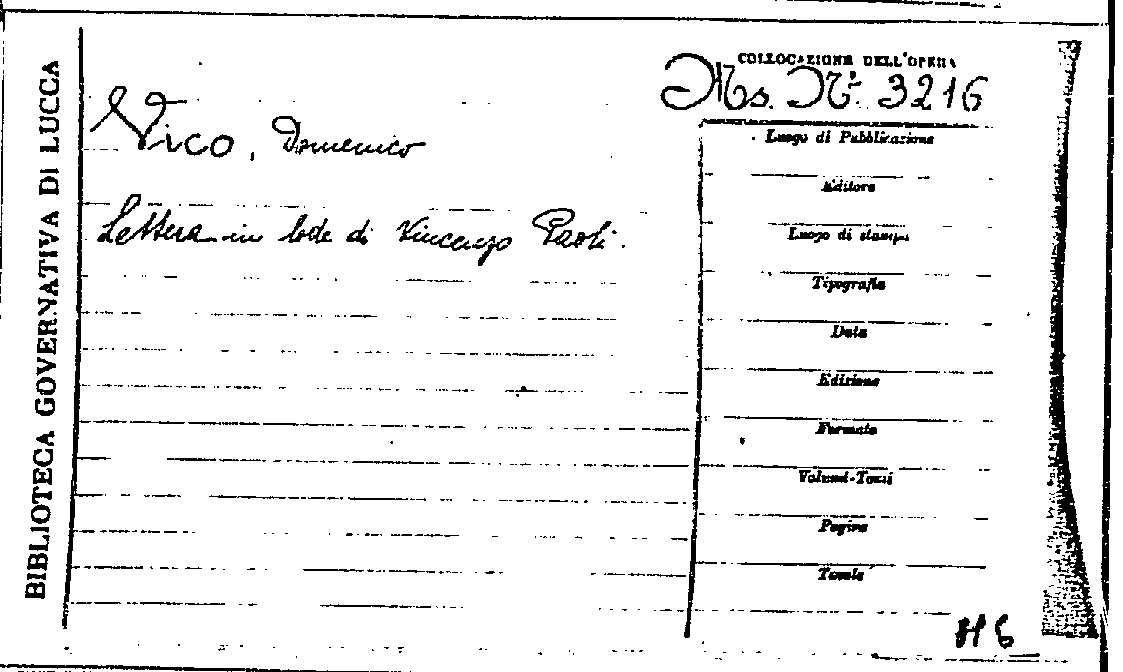 BIBLIOTECA GOVERNATIVA DI LUCCA
COLLOCAZIONE DELL'OPERA
Ms. N.º 3216
Vico, Domenico
Lettera in lode di Vincenzo Paoli.
Luogo di Pubblicazione
Editore
Luogo di stampa
Tipografia
Data
Edizione
Formato
Volumi-Tomi
Pagine
Tavole